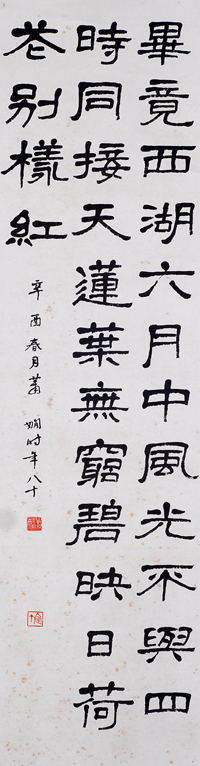 畢竟西湖六月中風光不與四
時同接天蓮葉無窮碧映日荷
花別樣紅
辛酉春月蕭嫻时年八十